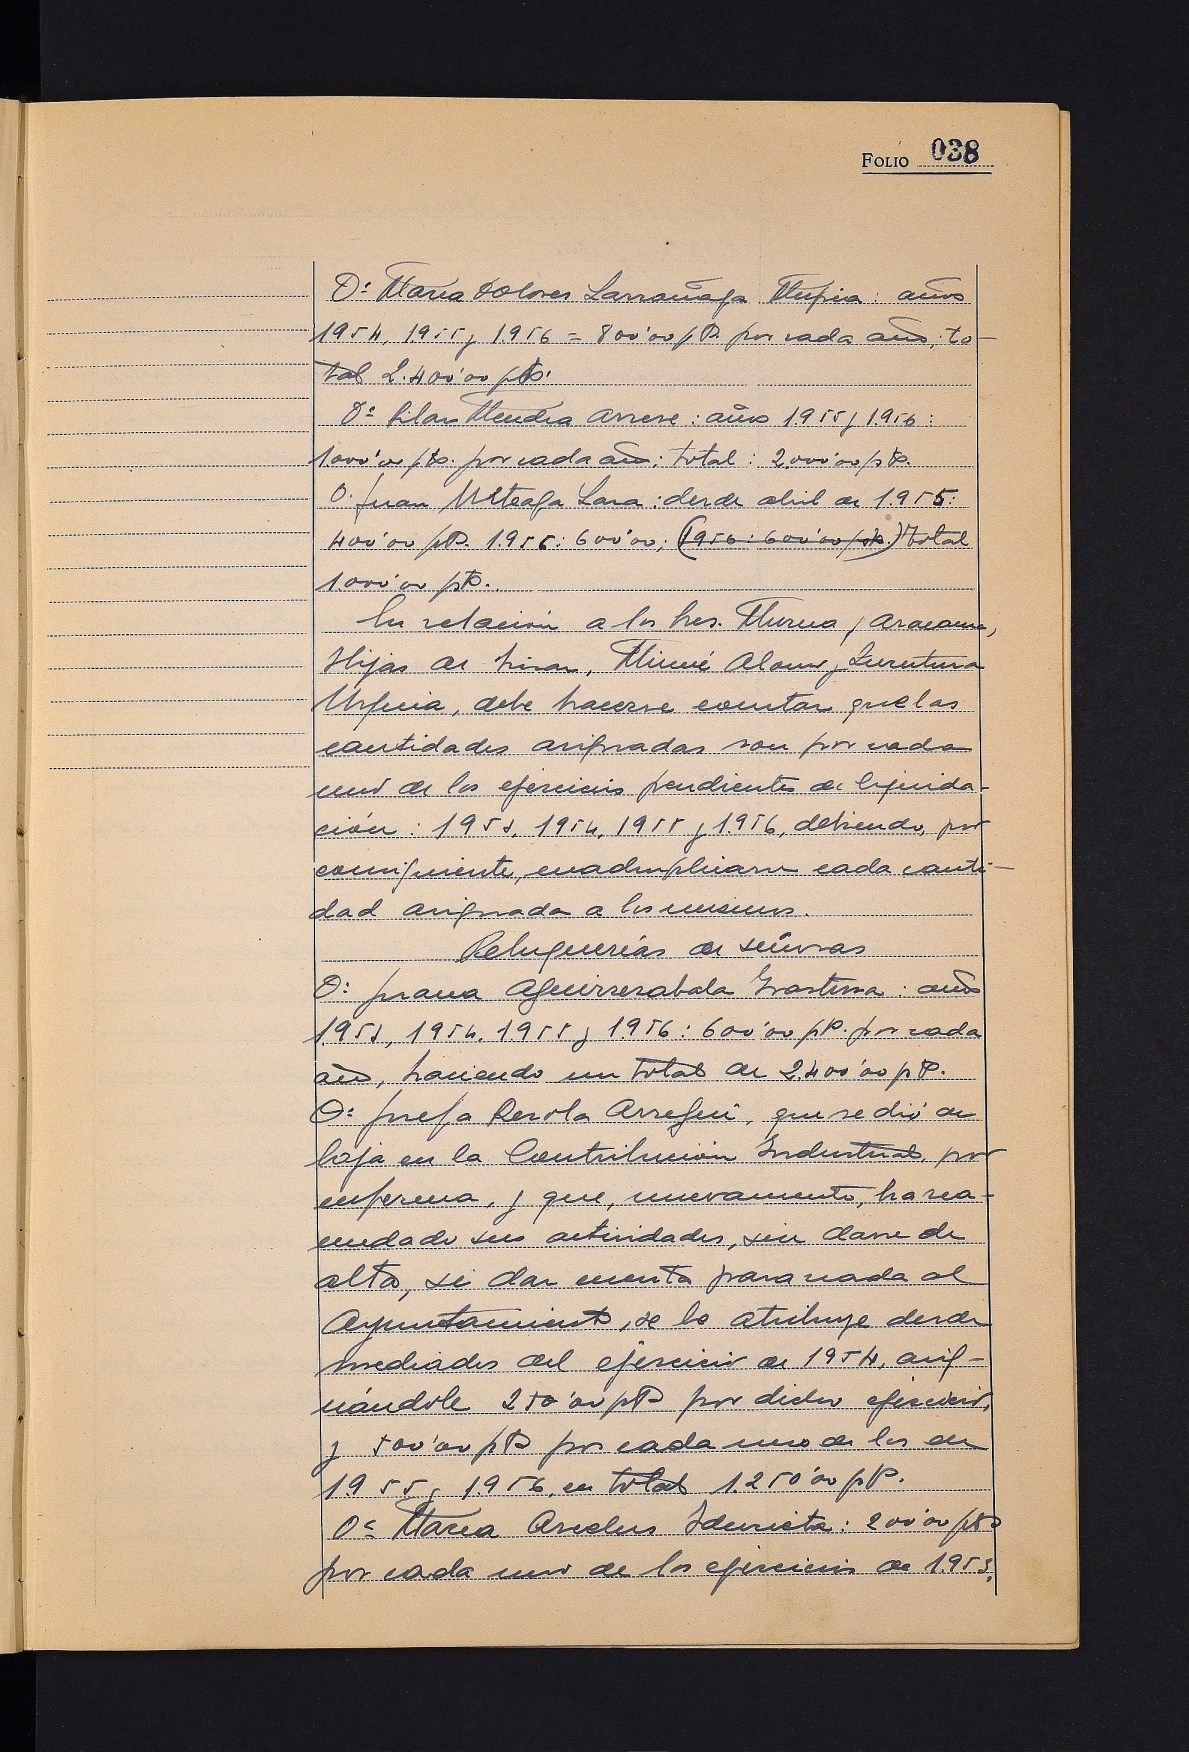 FOLIO 038
Dª María Dolores Larrañaga Mugica: años
1954, 1955 y 1956 = 800'00 pts. por cada año; to-
tal 2.400'00 pts.
Dª Pilar Mendia Arrese: años 1955 y 1956:
1000'00 pts. por cada año; total: 2000'00 pts.
D. Juan Urteaga Lara: desde abril de 1955:
400'00 pts. 1956: 600'00; (1956: 600'00 pts.) total
1.000'00 pts.
En relación a los Sres. Murua y Aracama,
Hijas de, Alonso y
debe hacerse constar que las
cantidades asignadas son por cada
uno de los ejercicios pendientes de liquida-
ción: 1953, 1954, 1955 y 1956, debiendo, por
consiguiente, cuadruplicarse cada canti-
dad asignada a los mismos.
Peluquerías de señoras
Dª Juana Aguirrezabala: años
1953, 1954, 1955 y 1956: 600'00 pts. por cada
año, haciendo un total de 2.400'00 pts.
Dª Josefa Rezola Arregui, que se dió de
baja en la Contribución Industrial, por
enferma, y que, nuevamente, ha rea-
nudado sus actividades, sin darse de
alta, ni dar cuenta para nada al
Ayuntamiento, se le atribuye desde
mediados del ejercicio de 1954, asig-
nándole 250'00 pts por dicho ejercicio,
y 500'00 pts por cada uno de los de
1955 y 1956, en total 1.250'00 pts.
Dª María: 200'00 pts
por cada uno de los ejercicios de 1.953,